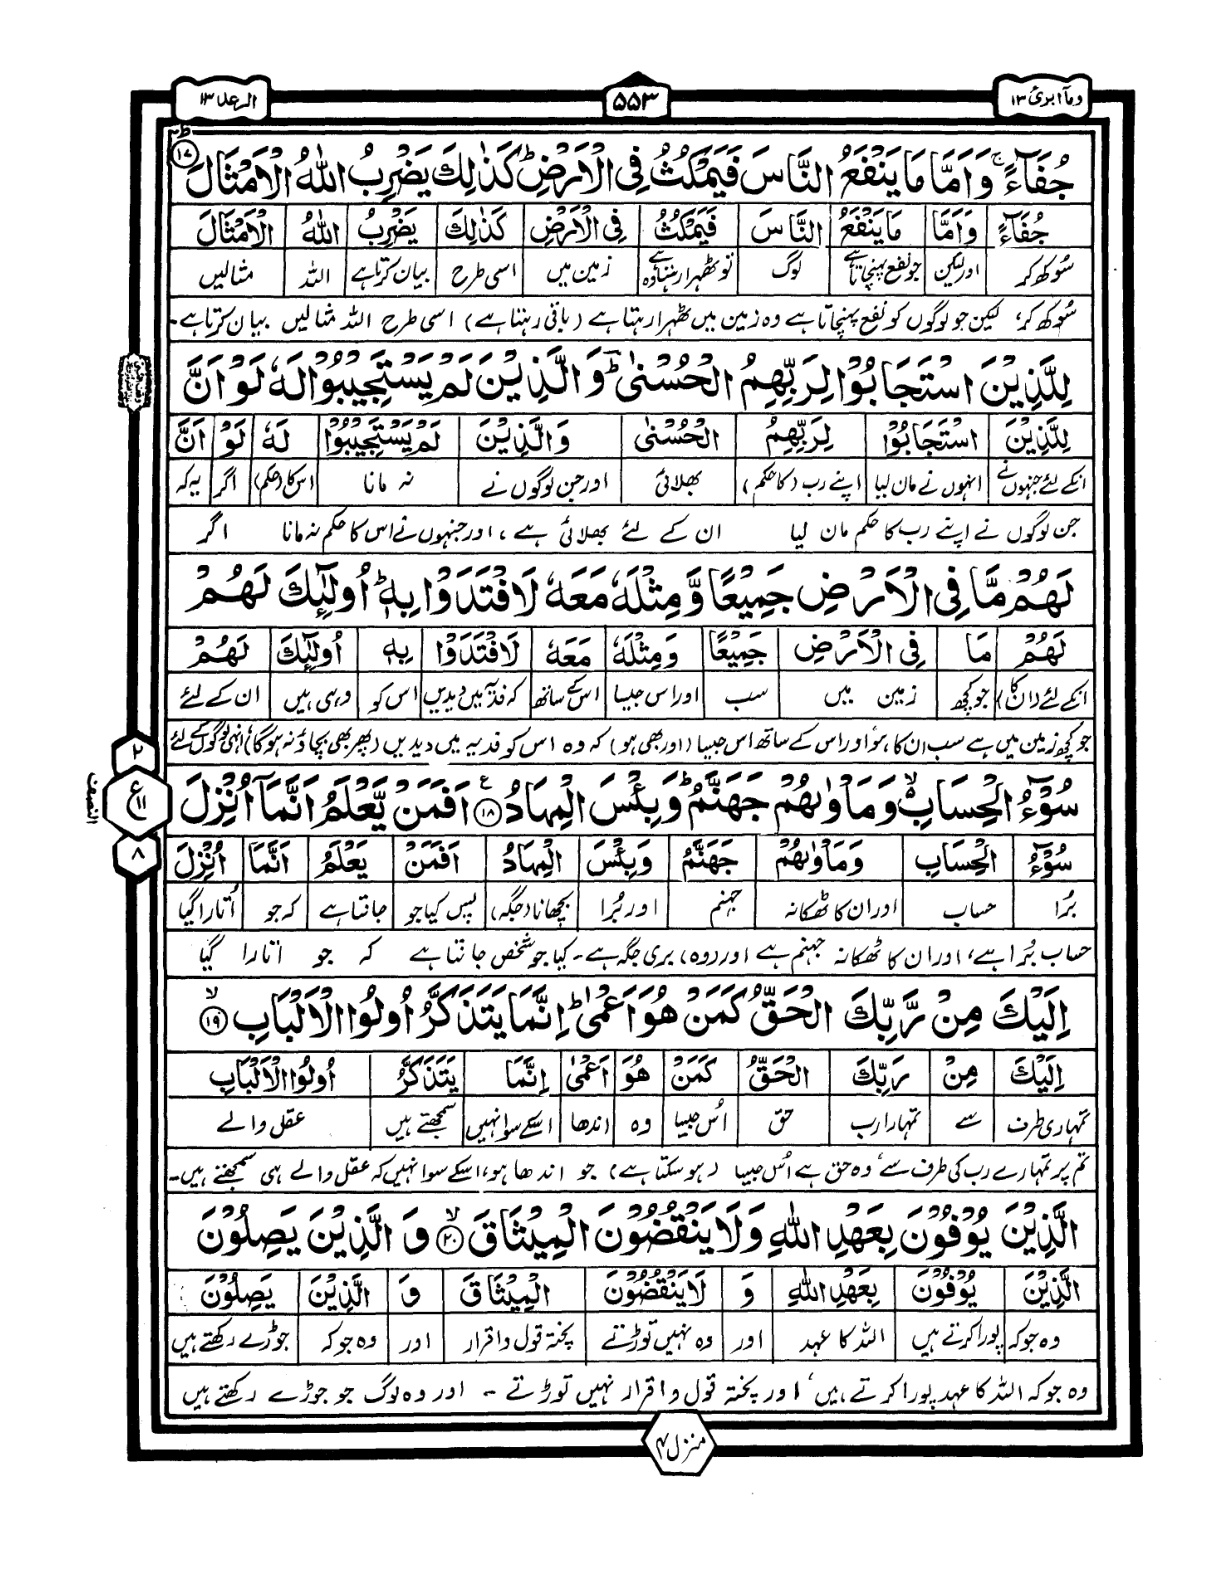 وما ابرئ ۱۳
۵۵۳
الرعد ۱۳
جُفَآءً ۚ وَاَمَّا مَا يَنْفَعُ النَّاسَ فَيَمْكُثُ فِي الْاَرْضِ ؕ كَذٰلِكَ يَضْرِبُ اللّٰهُ الْاَمْثَالَ ؕ ۱۷
جُفَآءً وَاَمَّا مَا يَنْفَعُ النَّاسَ فَيَمْكُثُ فِي الْاَرْضِ كَذٰلِكَ يَضْرِبُ اللّٰهُ الْاَمْثَالَ
سُوکھ کر اور لیکن جو نفع پہنچاتا ہے لوگ تو ٹھہرا رہتا ہے وہ زمین میں اسی طرح بیان کرتا ہے اللہ مثالیں
سُوکھ کر، لیکن جو لوگوں کو نفع پہنچاتا ہے وہ زمین میں ٹھہرا رہتا ہے (باقی رہتا ہے) اسی طرح اللہ مثالیں بیان کرتا ہے۔
لِلَّذِيْنَ اسْتَجَابُوْا لِرَبِّهِمُ الْحُسْنٰى ؕ وَالَّذِيْنَ لَمْ يَسْتَجِيْبُوْا لَهٗ لَوْ اَنَّ
لِلَّذِيْنَ اسْتَجَابُوْا لِرَبِّهِمُ الْحُسْنٰى وَالَّذِيْنَ لَمْ يَسْتَجِيْبُوْا لَهٗ لَوْ اَنَّ
انکے لئے جنہوں نے انہوں نے مان لیا اپنے رب (کا حکم) بھلائی اور جن لوگوں نے نہ مانا اس کا (حکم) اگر یہ کہ
جن لوگوں نے اپنے رب کا حکم مان لیا ان کے لئے بھلائی ہے، اور جنہوں نے اس کا حکم نہ مانا اگر
لَهُمْ مَّا فِي الْاَرْضِ جَمِيْعًا وَّمِثْلَهٗ مَعَهٗ لَافْتَدَوْا بِهٖ ؕ اُولٰٓئِكَ لَهُمْ
لَهُمْ مَا فِي الْاَرْضِ جَمِيْعًا وَمِثْلَهٗ مَعَهٗ لَافْتَدَوْا بِهٖ اُولٰٓئِكَ لَهُمْ
انکے لئے (ان کا) جو کچھ زمین میں سب اور اس جیسا اس کے ساتھ کہ فدیہ میں دیدیں اس کو وہی ہیں ان کے لئے
جو کچھ زمین میں ہے سب ان کا ہو اور اس کے ساتھ اس جیسا (اور بھی ہو) کہ وہ اس کو فدیہ میں دیدیں (پھر بھی بچاؤ نہ ہو گا) انہی لوگوں کے لئے
۲
ع ۱۱
۸
النصف
سُوْٓءُ الْحِسَابِ ۙ وَمَاْوٰىهُمْ جَهَنَّمُ ؕ وَبِئْسَ الْمِهَادُ ۱۸ اَفَمَنْ يَّعْلَمُ اَنَّمَآ اُنْزِلَ
سُوْٓءُ الْحِسَابِ وَمَاْوٰىهُمْ جَهَنَّمُ وَبِئْسَ الْمِهَادُ اَفَمَنْ يَعْلَمُ اَنَّمَا اُنْزِلَ
بُرا حساب اور ان کا ٹھکانہ جہنم اور بُرا بچھانا (جگہ) پس کیا جو جانتا ہے کہ جو اُتارا گیا
حساب بُرا ہے، اور ان کا ٹھکانہ جہنم ہے اور (وہ) بری جگہ ہے۔ کیا جو شخص جانتا ہے کہ جو اتارا گیا
اِلَيْكَ مِنْ رَّبِّكَ الْحَقُّ كَمَنْ هُوَ اَعْمٰى ؕ اِنَّمَا يَتَذَكَّرُ اُولُوا الْاَلْبَابِ ۙ ۱۹
اِلَيْكَ مِنْ رَبِّكَ الْحَقُّ كَمَنْ هُوَ اَعْمٰى اِنَّمَا يَتَذَكَّرُ اُولُوا الْاَلْبَابِ
تمہاری طرف سے تمہارا رب حق اُس جیسا وہ اندھا اسکے سوا نہیں سمجھتے ہیں عقل والے
تم پر تمہارے رب کی طرف سے، وہ حق ہے اُس جیسا (ہو سکتا ہے) جو اندھا ہو، اسکے سوا نہیں کہ عقل والے ہی سمجھتے ہیں۔
الَّذِيْنَ يُوْفُوْنَ بِعَهْدِ اللّٰهِ وَلَا يَنْقُضُوْنَ الْمِيْثَاقَ ۙ ۲۰ وَ الَّذِيْنَ يَصِلُوْنَ
الَّذِيْنَ يُوْفُوْنَ بِعَهْدِ اللّٰهِ وَ لَا يَنْقُضُوْنَ الْمِيْثَاقَ وَ الَّذِيْنَ يَصِلُوْنَ
وہ جو کہ پورا کرتے ہیں اللہ کا عہد اور وہ نہیں توڑتے پختہ قول و اقرار اور وہ جو کہ جوڑے رکھتے ہیں
وہ جو کہ اللہ کا عہد پورا کرتے ہیں، اور پختہ قول و اقرار نہیں توڑتے ۔ اور وہ لوگ جو جوڑے رکھتے ہیں
منزل ۳